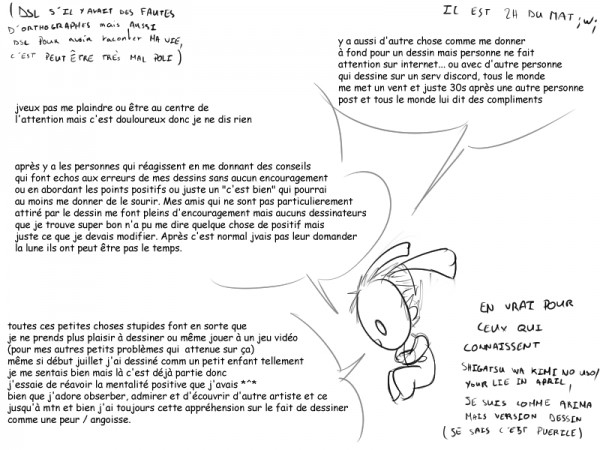 ( DSL S'IL Y AVAIT DES FAUTES
D'ORTHOGRAPHES MAIS AUSSI
DSL POUR avoir raconter MA VIE,
C'EST PEUT ÊTRE TRÈS MAL POLI )
IL EST 2H DU MAT ;w;
y a aussi d'autre chose comme me donner
à fond pour un dessin mais personne ne fait
attention sur internet... ou avec d'autre personne
qui dessine sur un serv discord, tous le monde
me met un vent et juste 30s après une autre personne
post et tous le monde lui dit des compliments
jveux pas me plaindre ou être au centre de
l'attention mais c'est douloureux donc je ne dis rien
après y a les personnes qui réagissent en me donnant des conseils
qui font echos aux erreurs de mes dessins sans aucun encouragement
ou en abordant les points positifs ou juste un "c'est bien" qui pourrai
au moins me donner de le sourir. Mes amis qui ne sont pas particulierement
attiré par le dessin me font pleins d'encouragement mais aucuns dessinateurs
que je trouve super bon n'a pu me dire quelque chose de positif mais
juste ce que je devais modifier. Après c'est normal jvais pas leur domander
la lune ils ont peut être pas le temps.
toutes ces petites choses stupides font en sorte que
je ne prends plus plaisir à dessiner ou même jouer à un jeu vidéo
(pour mes autres petits problèmes qui attenue sur ça)
même si début juillet j'ai dessiné comm un petit enfant tellement
je me sentais bien mais là c'est déjà partie donc
j'essaie de réavoir la mentalité positive que j'avais *^*
bien que j'adore obserber, admirer et d'écouvrir d'autre artiste et ce
jusqu'à mtn et bien j'ai toujours cette appréhension sur le fait de dessiner
comme une peur / angoisse.
EN VRAI POUR
CEUX QUI
CONNAISSENT
SHIGATSU WA KIMI NO USO/
YOUR LIE IN APRIL,
JE SUIS COMME ARIMA
MAIS VERSION DESSIN
( JE SAIS C'EST PUERILE )